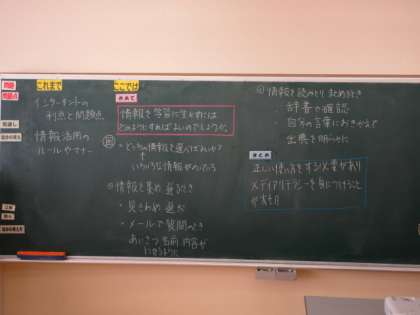 問題
問題点
これまで
インターネットの
利点と問題点
情報活用の
ルールやマナー
ここでは
めあて
情報を学習に生かすには
どのようにすればよいのでしょうか。
・どちらの情報を選べばよいか？
いろいろな情報
①情報を集め 選ぶとき
・見きわめ 選ぶ
・メールで質問のとき
あいさつ 名前 内容が
②情報を読みとり まとめるとき
・辞書で確認
・自分の言葉におきかえて
・出典を明らかに
まとめ
正しい使い方をする必要があり
メディアリテラシーを身につけること
が大切